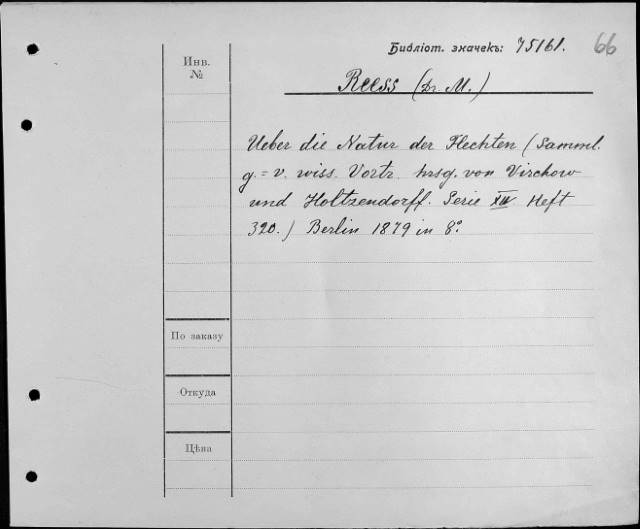 Библіот. значекъ: 75161.
66
Инв.
№
Reess (Dr. M.)
Ueber die Natur der Flechten (Sammel.
g.=v. wiss. Vortr. hrsg. von Virchow
und Holtzendorff. Serie XIV Heft
320.) Berlin 1879 in 8º
По заказу
Откуда
Цѣна